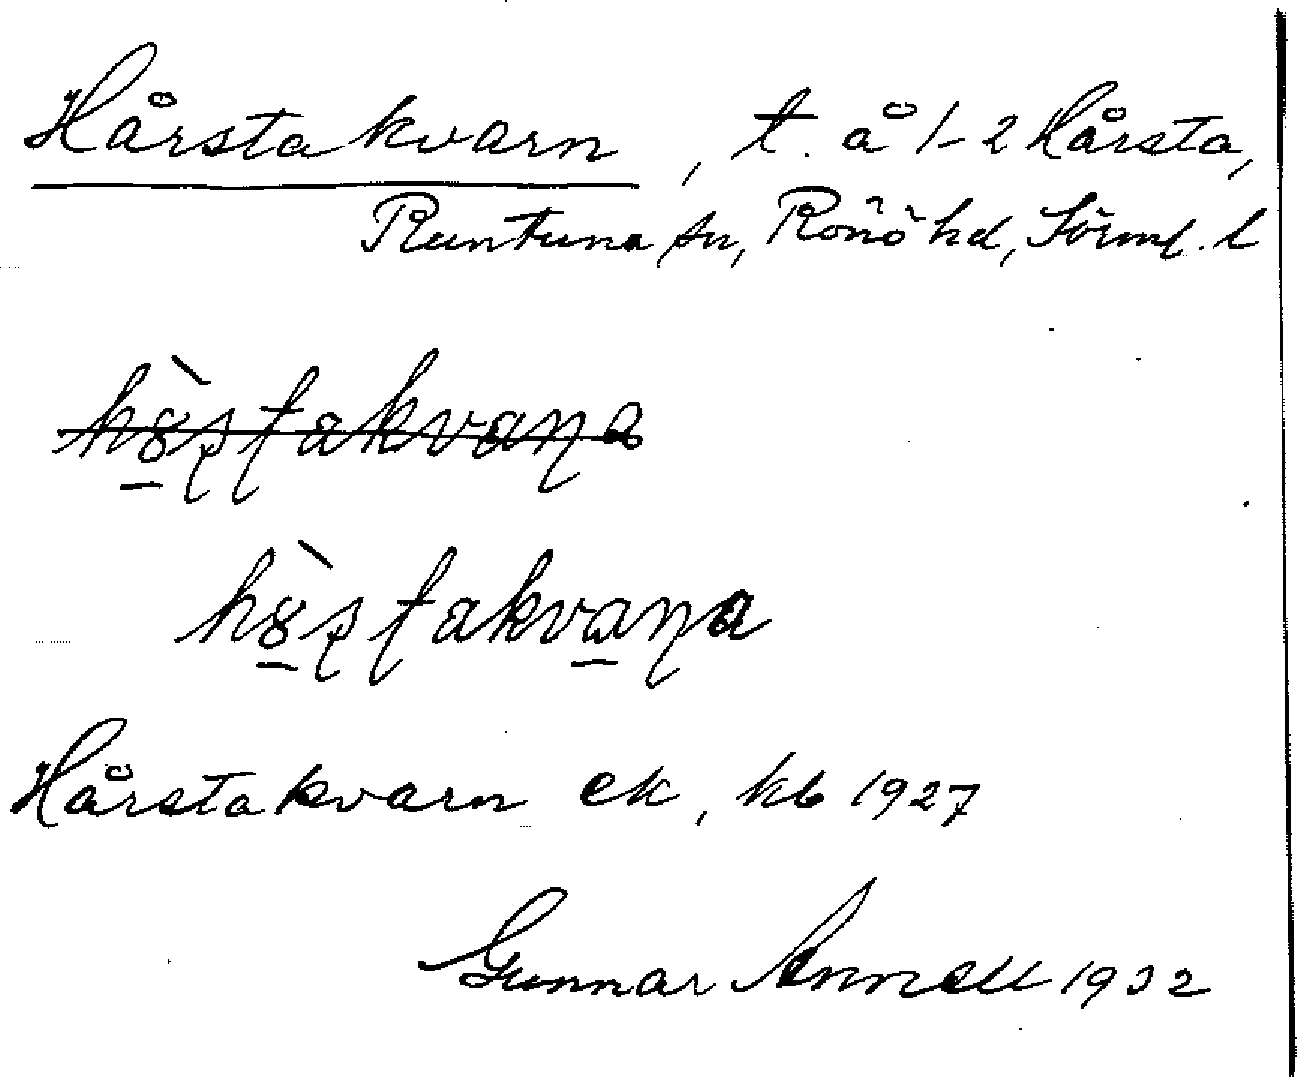 Hårstakvarn, t. å 1-2 Hårsta,
Runtuna sn, Rönö hd, Sörml. l
Hårstakvarn ek, kb 1927
Gunnar Annell 1932